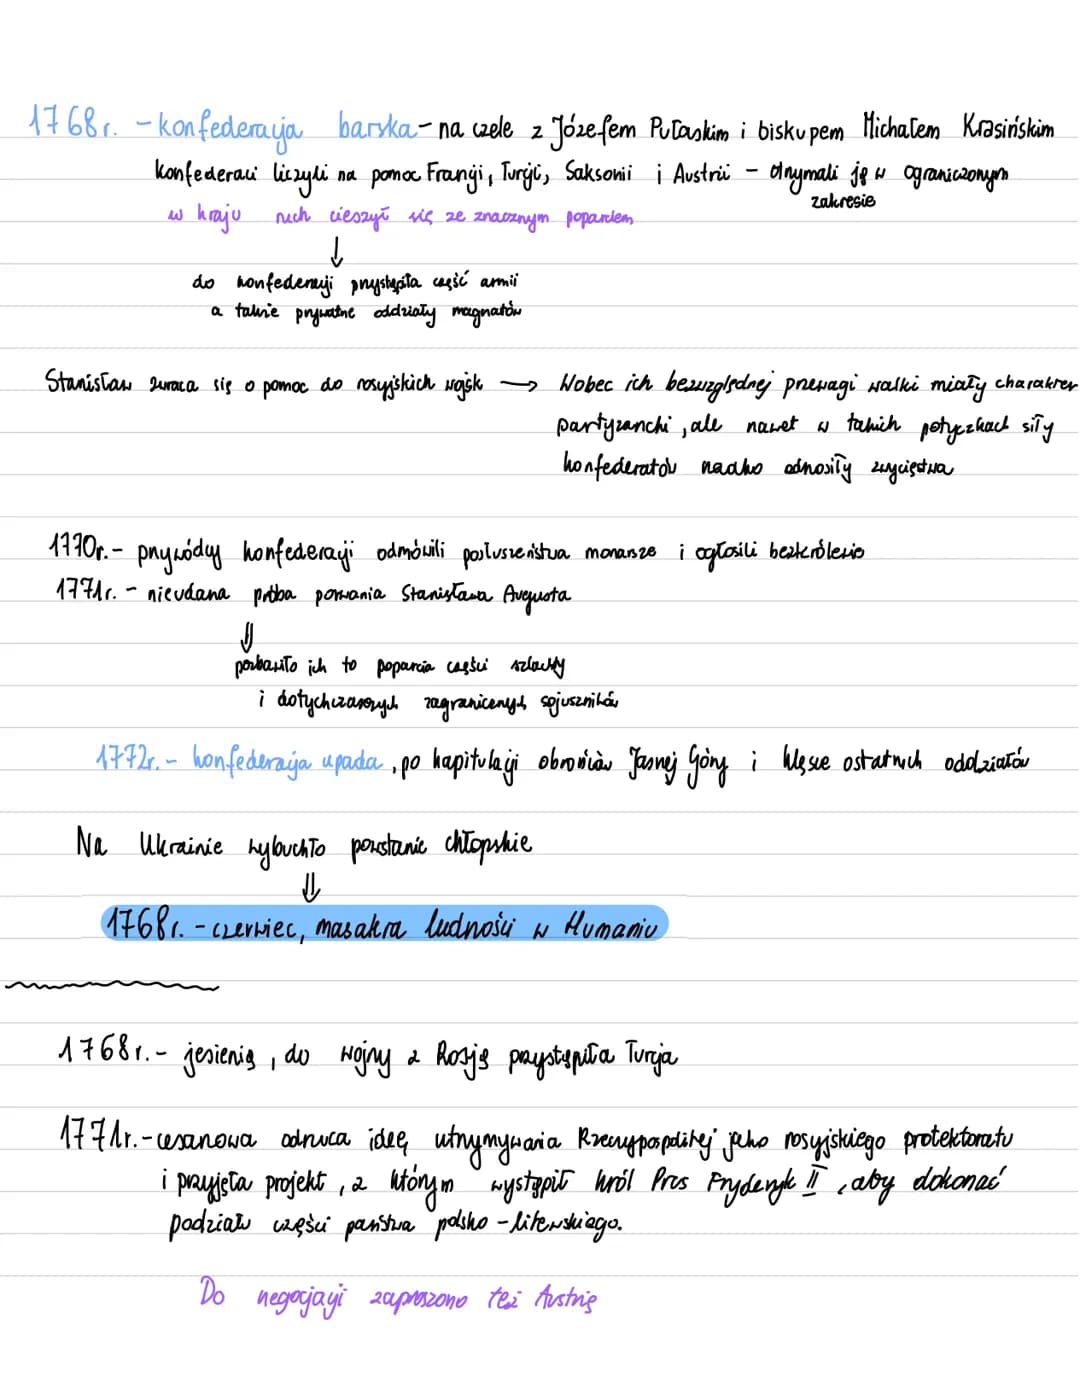 1768r. - konfederacja barska - na czele z Józefem Pułaskim i biskupem Michałem Krasińskim
konfederaci liczyli na pomoc Francji, Turcji, Saksonii i Austrii - otrzymali ją w ograniczonym
zakresie
w kraju ruch cieszył się ze znacznym poparciem
↓
do konfederacji przystąpiła część armii
a także prywatne oddziały magnatów
Stanisław zwraca się o pomoc do rosyjskich wojsk → Wobec ich bezwzględnej przewagi walki miały charakter
partyzancki, ale nawet w takich potyczkach siły
konfederatów rzadko odnosiły zwycięstwa
1770r. - przywódcy konfederacji odmówili posłuszeństwa monarsze i ogłosili bezkrólewie
1771r. - nieudana próba porwania Stanisława Augusta
⇓
pozbawiło ich to poparcia części szlachty
i dotychczasowych zagranicznych sojuszników
1772r. - konfederacja upada, po kapitulacji obrońców Jasnej Góry i klęsce ostatnich oddziałów
Na Ukrainie wybuchło powstanie chłopskie
⇓
1768r. - czerwiec, masakra ludności w Humaniu
1768r. - jesienią, do wojny z Rosją przystąpiła Turcja
1771r. - cesarzowa odrzuca ideę utrzymywania Rzeczypospolitej jako rosyjskiego protektoratu
i przyjęta projekt, z którym wystąpił król Prus Fryderyk II, aby dokonać
podziału części państwa polsko - litewskiego.
Do negocjacji zaproszono też Austrię